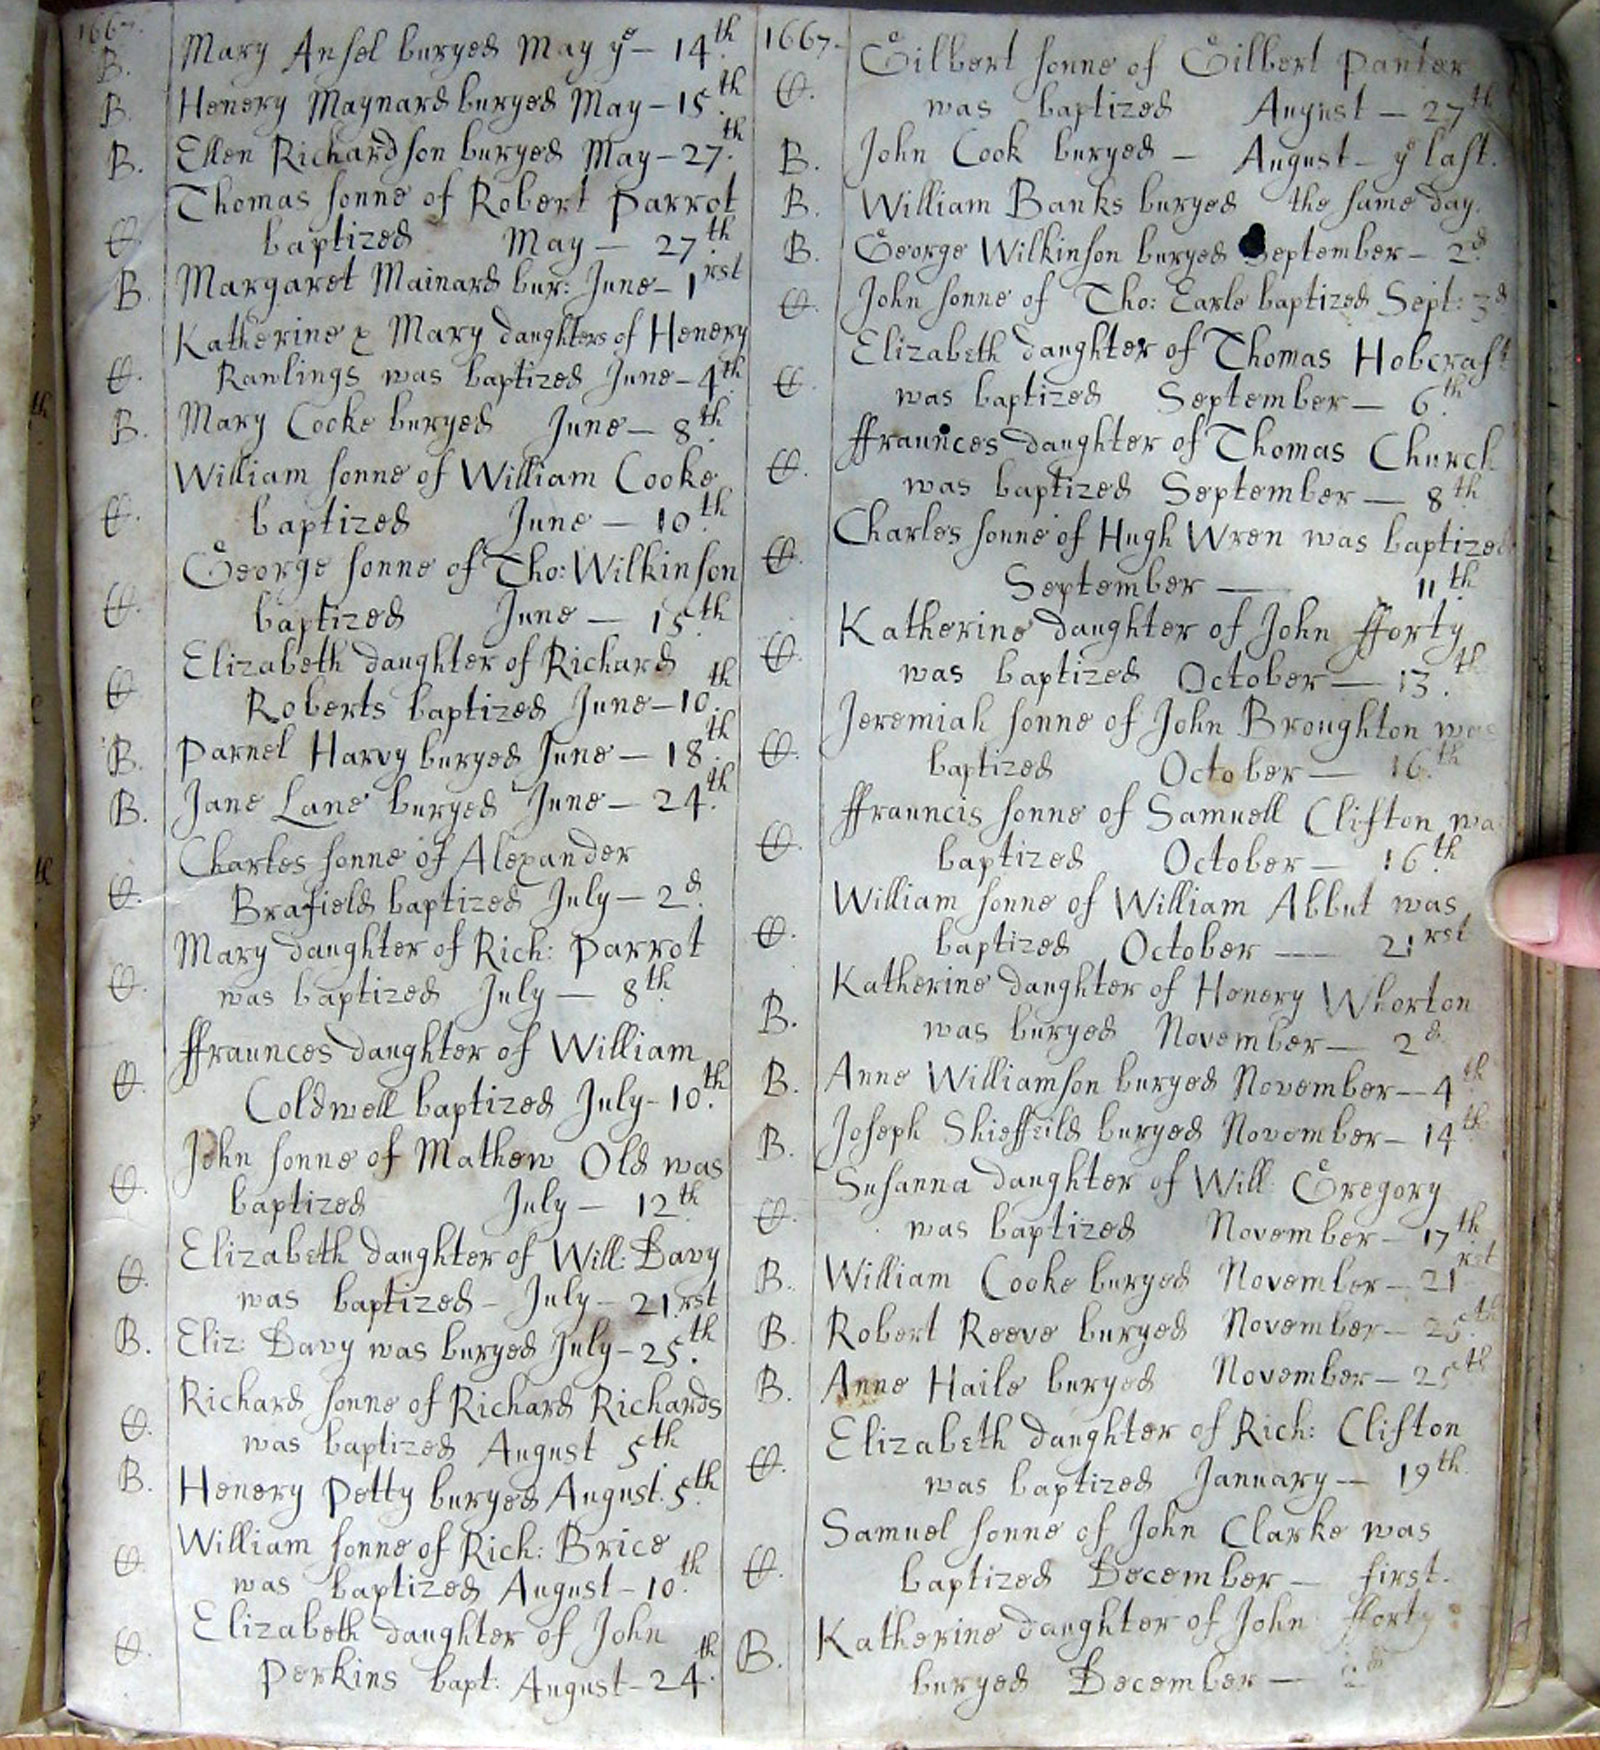 1667.
B. Mary Ansel buryed May ye — 14th
B. Henery Maynard buryed May — 15th
B. Ellen Richardson buryed May — 27th
Thomas sonne of Robert Parrot
baptized May — 27th
B. Margaret Mainard bur: June — 1rst
Katherine & Mary daughters of Henery
Rawlings was baptized June — 4th
B. Mary Cooke buryed June — 8th
William sonne of William Cooke
baptized June — 10th
George sonne of Tho: Wilkinson
baptized June — 15th
Elizabeth daughter of Richard
Roberts baptized June — 10th
B. Parnel Harvy buryed June — 18th
B. Jane Lane buryed June — 24th
Charles sonne of Alexander
Brafield baptized July — 2d
Mary daughter of Rich: Parrot
was baptized July — 8th
ffraunces daughter of William
Coldwell baptized July — 10th
John sonne of Mathew Old was
baptized July — 12th
Elizabeth daughter of Will: Davy
was baptized — July — 21rst
B. Eliz: Davy was buryed July — 25th
Richard sonne of Richard Richards
was baptized August 5th
B. Henery Petty buryed August. 5th
William sonne of Rich: Brice
was baptized August — 10th
Elizabeth daughter of John
Perkins bapt: August — 24th
1667.
Gilbert sonne of Gilbert Panter
was baptized August — 27th
B. John Cook buryed — August — ye last.
B. William Banks buryed the same day.
B. George Wilkinson buryed September — 2d
John sonne of Tho: Earle baptized Sept: 3d
Elizabeth daughter of Thomas Hobcraft
was baptized September — 6th
ffraunces daughter of Thomas Church
was baptized September — 8th
Charles sonne of Hugh Wren was baptized
September — 11th
Katherine daughter of John fforty
was baptized October — 13th
Jeremiah sonne of John Broughton was
baptized October — 16th
ffrauncis sonne of Samuell Clifton was
baptized October — 16th
William sonne of William Abbut was
baptized October — 21rst
Katherine daughter of Henery Whorton
B. was buryed November — 2d
B. Anne Williamson buryed November — 4th
B. Joseph Shieffeild buryed November — 14th
Susanna daughter of Will: Gregory
was baptized November — 17th
B. William Cooke buryed November — 21rst
B. Robert Reeve buryed November — 25th
B. Anne Haile buryed November — 25th
Elizabeth daughter of Rich: Clifton
was baptized January — 19th
Samuel sonne of John Clarke was
baptized December — first.
Katherine daughter of John fforty
B. buryed December —